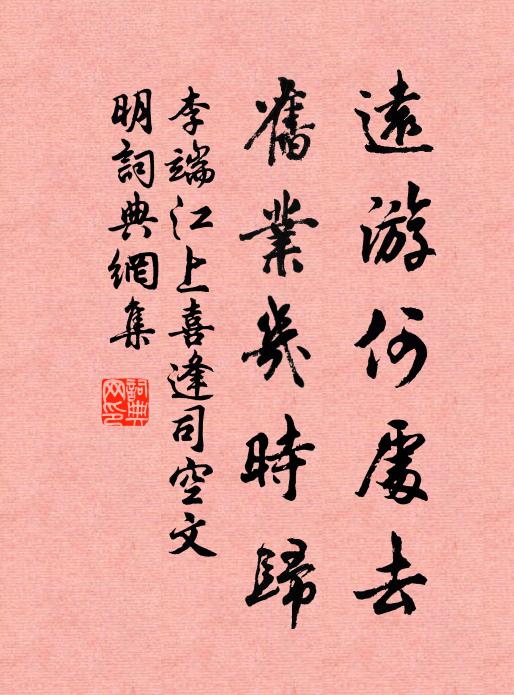 遠游何處去
舊業幾時歸
李端江上喜逢司空文
明詞典網集
詞典網印